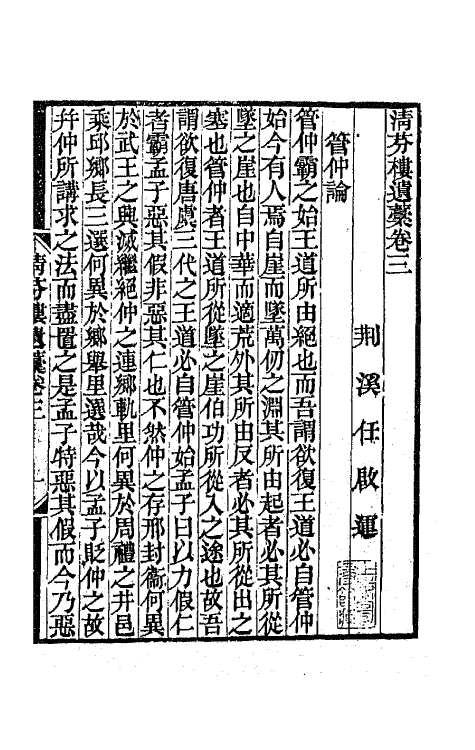 清芬樓遺藁卷三
荆溪任啟運
管仲論
管仲霸之始王道所由絕也而吾謂欲復王道必自管仲
始今有人焉自崖而墜萬仞之淵其所由起者必其所從
墜之崖也自中華而適荒外其所由反者必其所從出之
塞也管仲者王道所從墜之崖伯功所從入之途也故吾
謂欲復唐虞三代之王道必自管仲始孟子曰以力假仁
者霸孟子惡其假非惡其仁也不然仲之存邢封衞何異
於武王之興滅繼絕仲之連鄉軌里何異於周禮之井邑
乘邱鄉長三選何異於鄉舉里選哉今以孟子貶仲之故
幷仲所講求之法而盡置之是孟子特惡其假而今乃惡
清芬樓遺藁卷三 一